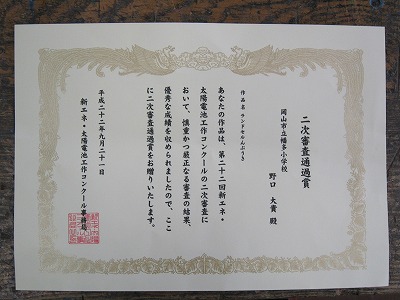 二次審査通過賞
岡山市立幡多小学校
野口 大貴 殿
作品名 サンドセルんぷうき
あなたの作品は、第二十二回新エネ・
太陽電池工作コンクールの二次審査に
おいて、慎重かつ厳正なる審査の結果、
優秀な成績を収められましたので、ここ
に二次審査通過賞をお贈りいたします。
平成二十二年九月二十一日
新エネ・太陽電池工作コンクール事務局